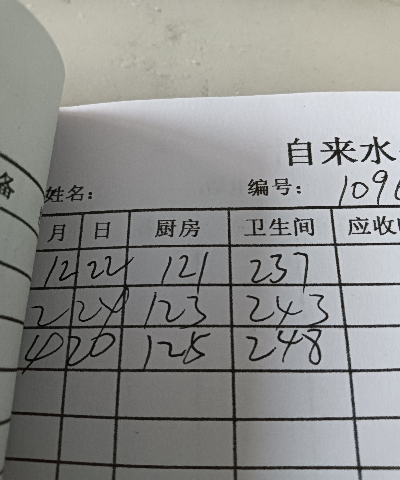 备
自来水
姓名： 编号：109
月 日 厨房 卫生间 应收
12 22 121 237
2 24 123 243
4 20 125 248